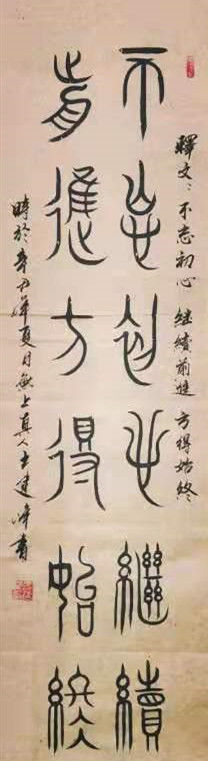 釋文：不忘初心 继續前進 方得始終
不忘初心繼續
前進方得始終
時於辛丑年夏日無上真人士建峰書